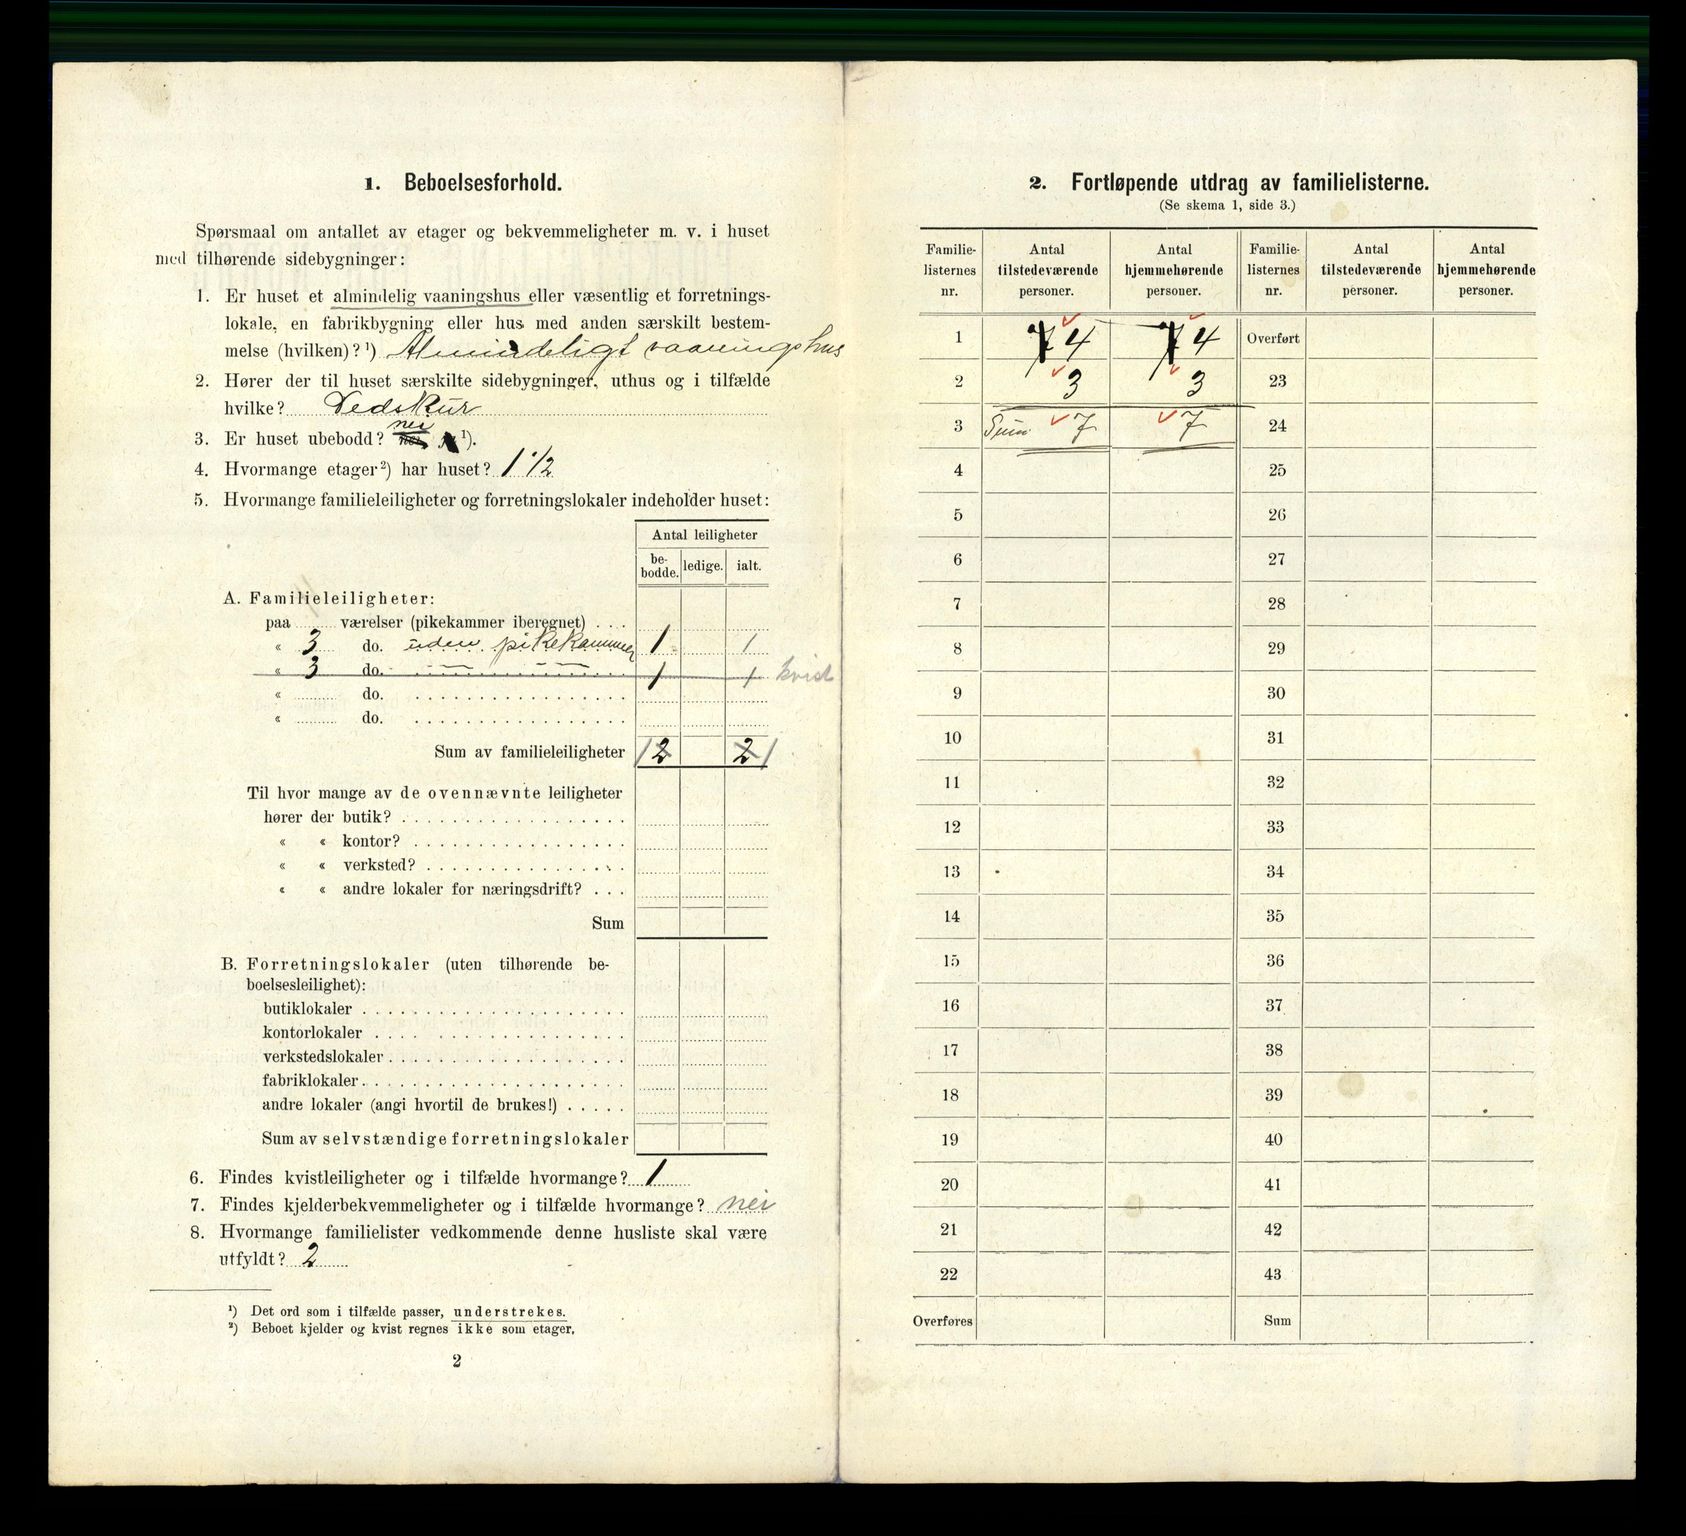 1. Beboelsesforhold.
Spørsmaal om antallet av etager og bekvemmeligheter m. v. i huset
med tilhørende sidebygninger:
1. Er huset et almindelig vaaningshus eller væsentlig et forretnings-
lokale, en fabrikbygning eller hus med anden særskilt bestem-
melse (hvilken)?¹) Almindeligt vaaningshus
2. Hører der til huset særskilte sidebygninger, uthus og i tilfælde
hvilke? Vedskur
nei
3. Er huset ubebodd? nei ja ¹).
4. Hvormange etager²) har huset? 1 1/2
5. Hvormange familieleiligheter og forretningslokaler indeholder huset:
Antal leiligheter
be-bodde. ledige. ialt.
A. Familieleiligheter:
paa værelser (pikekammer iberegnet) . . .
« 3 do. uden pikekammer 1 1
« 3 do. — — 1 1 kvist
« do. . . . . . . . . . . . . . . . . .
« do. . . . . . . . . . . . . . . . . .
Sum av familieleiligheter 1 2 2 1
Til hvor mange av de ovennævnte leiligheter
hører der butik? . . . . . . . . . . . . . . . . . .
« « kontor? . . . . . . . . . . . . . . . . .
« « verksted? . . . . . . . . . . . . . . . .
« « andre lokaler for næringsdrift? . . .
Sum
B. Forretningslokaler (uten tilhørende be-
boelsesleilighet):
butiklokaler . . . . . . . . . . . . . . . . . . . . .
kontorlokaler . . . . . . . . . . . . . . . . . . . .
verkstedslokaler . . . . . . . . . . . . . . . . . . .
fabriklokaler . . . . . . . . . . . . . . . . . . . . .
andre lokaler (angi hvortil de brukes!) . . . . .
Sum av selvstændige forretningslokaler
6. Findes kvistleiligheter og i tilfælde hvormange? 1
7. Findes kjelderbekvemmeligheter og i tilfælde hvormange? nei
8. Hvormange familielister vedkommende denne husliste skal være
utfyldt? 2
¹) Det ord som i tilfælde passer, understrekes.
²) Beboet kjelder og kvist regnes ikke som etager.
2
2. Fortløpende utdrag av familielisterne.
(Se skema 1, side 3.)
Familie- Antal Antal Familie- Antal Antal
listernes tilstedeværende hjemmehørende listernes tilstedeværende hjemmehørende
nr. personer. personer. nr. personer. personer.
1 7 4 7 4 Overført
2 3 3 23
3 Sum 7 7 24
4 25
5 26
6 27
7 28
8 29
9 30
10 31
11 32
12 33
13 34
14 35
15 36
16 37
17 38
18 39
19 40
20 41
21 42
22 43
Overføres Sum